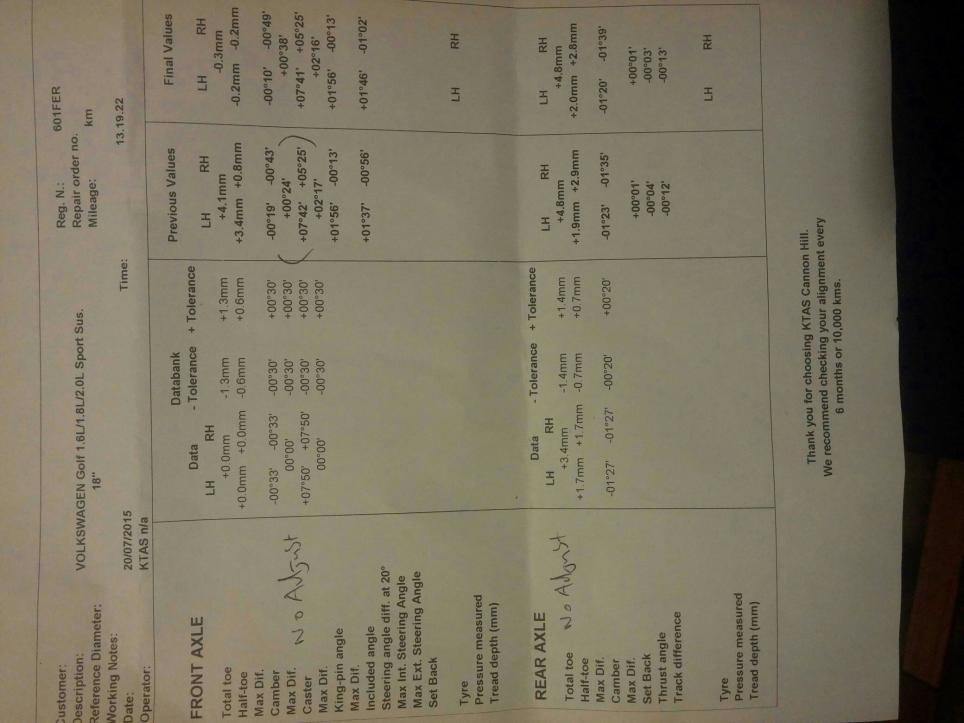 Customer: Reg. N.: 601FER
Description: VOLKSWAGEN Golf 1.6L/1.8L/2.0L Sport Sus. Repair order no.
Reference Diameter: 18" Mileage: km
Working Notes:
Date: 20/07/2015 Time: 13.19.22
Operator: KTAS n/a
FRONT AXLE Databank Previous Values Final Values
Data - Tolerance + Tolerance
LH RH LH RH LH RH
Total toe +0.0mm -1.3mm +1.3mm +4.1mm -0.3mm
Half-toe +0.0mm +0.0mm -0.6mm +0.6mm +3.4mm +0.8mm -0.2mm -0.2mm
Max Dif.
Camber -00°33' -00°33' -00°30' +00°30' -00°19' -00°43' -00°10' -00°49'
Max Dif. No Adjust 00°00' -00°30' +00°30' +00°24' +00°38'
Caster +07°50' +07°50' -00°30' +00°30' ( +07°42' +05°25' ) +07°41' +05°25'
Max Dif. 00°00' -00°30' +00°30' +02°17' +02°16'
King-pin angle +01°56' -00°13' +01°56' -00°13'
Max Dif.
Included angle +01°37' -00°56' +01°46' -01°02'
Steering angle diff. at 20°
Max Int. Steering Angle
Max Ext. Steering Angle
Set Back
Tyre LH RH
Pressure measured
Tread depth (mm)
REAR AXLE Data - Tolerance + Tolerance
LH RH LH RH LH RH
Total toe No Adjust +3.4mm -1.4mm +1.4mm +4.8mm +4.8mm
Half-toe +1.7mm +1.7mm -0.7mm +0.7mm +1.9mm +2.9mm +2.0mm +2.8mm
Max Dif.
Camber -01°27' -01°27' -00°20' +00°20' -01°23' -01°35' -01°20' -01°39'
Max Dif.
Set Back +00°01' +00°01'
Thrust angle -00°04' -00°03'
Track difference -00°12' -00°13'
Tyre LH RH
Pressure measured
Tread depth (mm)
Thank you for choosing KTAS Cannon Hill.
We recommend checking your alignment every
6 months or 10,000 kms.